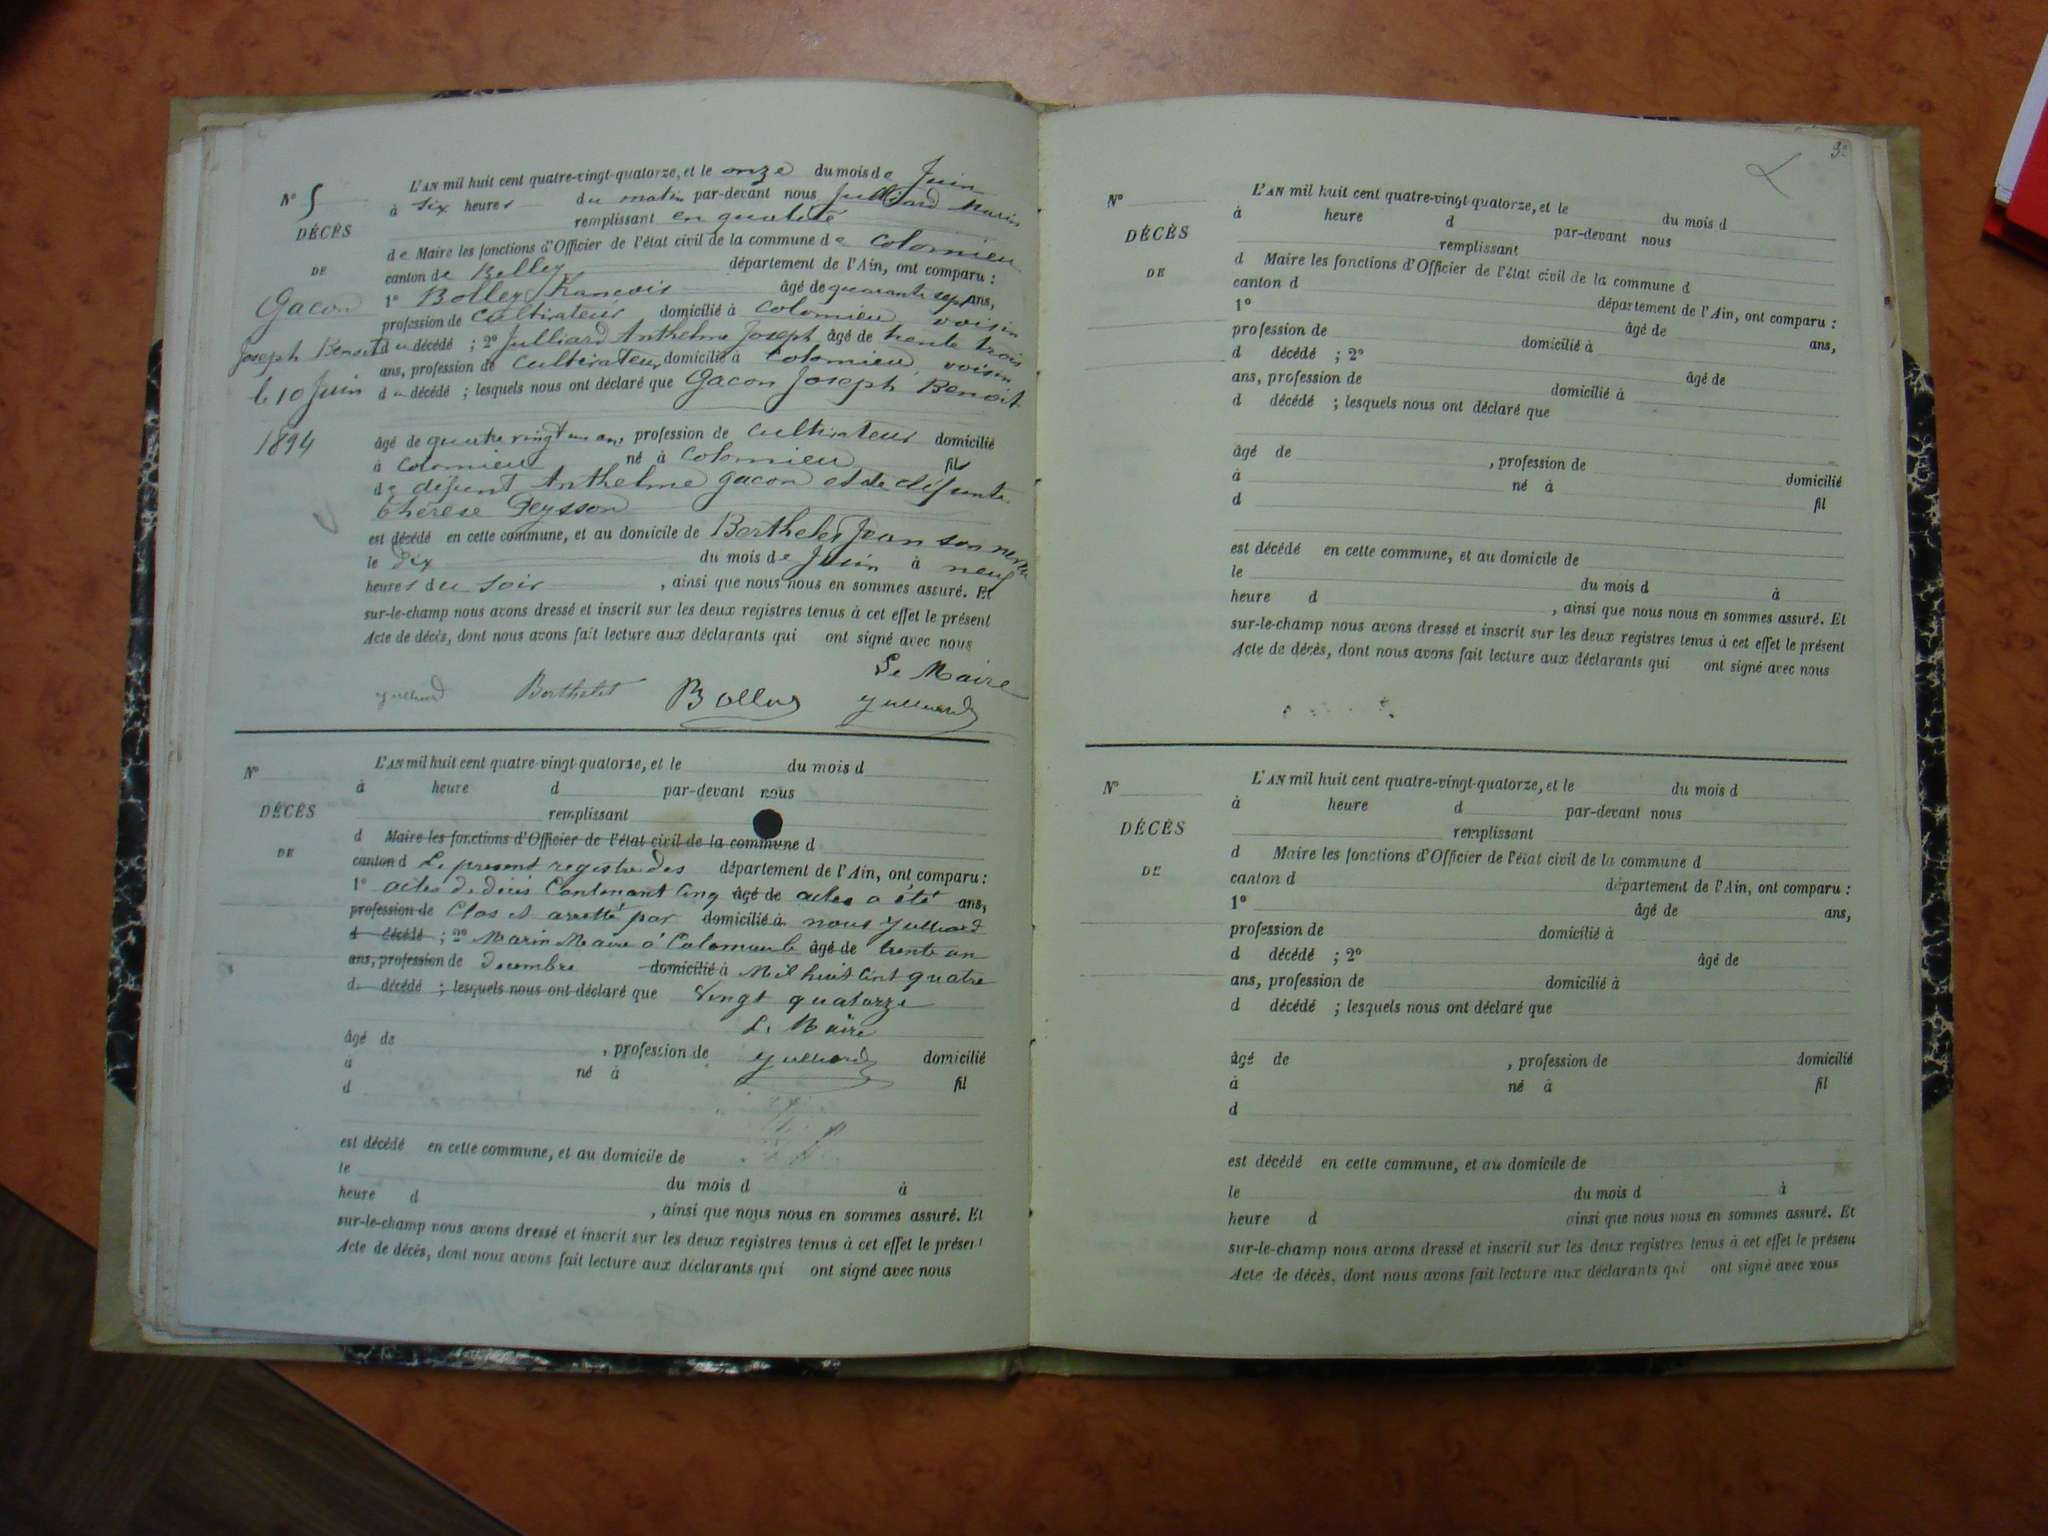 N° 5
DÉCÈS
DE
Gacon
Joseph Benoit
le 10 Juin
1894
L'AN mil huit cent quatre-vingt-quatorze, et le onze du mois de Juin
à six heures du matin par-devant nous Julliard Marin
remplissant en qualité
de Maire les fonctions d'Officier de l'état civil de la commune de Colomieu
canton de Belley département de l'Ain, ont comparu :
1° Bolley François âgé de quarante sept ans,
profession de cultivateur domicilié à Colomieu voisin
du décédé ; 2° Julliard Anthelme Joseph âgé de trente trois
ans, profession de cultivateur domicilié à Colomieu, voisin
du décédé ; lesquels nous ont déclaré que Gacon Joseph Benoit
âgé de quatre vingt un ans, profession de cultivateur domicilié
à Colomieu né à Colomieu fils
de défunt Anthelme Gacon et de défunte
Thérèse Peysson
est décédé en cette commune, et au domicile de Berthelet Jean son neveu
le dix du mois de Juin à neuf
heures du soir , ainsi que nous nous en sommes assuré. Et
sur-le-champ nous avons dressé et inscrit sur les deux registres tenus à cet effet le présent
Acte de décès, dont nous avons fait lecture aux déclarants qui ont signé avec nous
Le Maire
Julliard Berthelet Julliard
N°
DÉCÈS
DE
L'AN mil huit cent quatre-vingt-quatorze, et le du mois d
à heure d par-devant nous
remplissant
d Maire les fonctions d'Officier de l'état civil de la commune d
canton d Le present registre des département de l'Ain, ont comparu :
1° actes de décès Contenant Cinq âgé de actes a été ans,
profession de Clos et arretté par domicilié à nous Julliard
d décédé ; 2° Marin Maire à Colomieu le âgé de trente un
ans, profession de decembre domicilié à Mil huit Cint quatre
d décédé ; lesquels nous ont déclaré que Vingt quatorze
Le Maire
âgé de , profession de Julliard domicilié
à né à fil
d
est décédé en cette commune, et au domicile de
le du mois d à
heure d , ainsi que nous nous en sommes assuré. Et
sur-le-champ nous avons dressé et inscrit sur les deux registres tenus à cet effet le présent
Acte de décès, dont nous avons fait lecture aux déclarants qui ont signé avec nous
N°
DÉCÈS
DE
L'AN mil huit cent quatre-vingt-quatorze, et le du mois d
à heure d par-devant nous
remplissant
d Maire les fonctions d'Officier de l'état civil de la commune d
canton d département de l'Ain, ont comparu :
1° âgé de ans,
profession de domicilié à
d décédé ; 2° âgé de
ans, profession de domicilié à
d décédé ; lesquels nous ont déclaré que
âgé de , profession de domicilié
à né à fil
d
est décédé en cette commune, et au domicile de
le du mois d à
heure d , ainsi que nous nous en sommes assuré. Et
sur-le-champ nous avons dressé et inscrit sur les deux registres tenus à cet effet le présent
Acte de décès, dont nous avons fait lecture aux déclarants qui ont signé avec nous
N°
DÉCÈS
DE
L'AN mil huit cent quatre-vingt-quatorze, et le du mois d
à heure d par-devant nous
remplissant
d Maire les fonctions d'Officier de l'état civil de la commune d
canton d département de l'Ain, ont comparu :
1° âgé de ans,
profession de domicilié à
d décédé ; 2° âgé de
ans, profession de domicilié à
d décédé ; lesquels nous ont déclaré que
âgé de , profession de domicilié
à né à fil
d
est décédé en cette commune, et au domicile de
le du mois d à
heure d ainsi que nous nous en sommes assuré. Et
sur-le-champ nous avons dressé et inscrit sur les deux registres tenus à cet effet le présent
Acte de décès, dont nous avons fait lecture aux déclarants qui ont signé avec nous